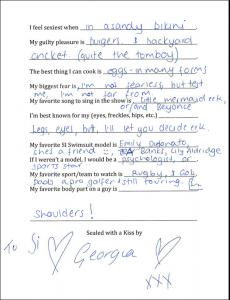 I feel sexiest when in a sandy bikini
My guilty pleasure is burgers. & backyard
cricket (quite the tomboy)
The best thing I can cook is eggs - in many forms
My biggest fear is I'm not fearless, but test
me, I'm not far from.
My favorite song to sing in the show is little mermaid eek,
or/and Beyonce
I'm best known for my (eyes, freckles, hips, etc.)
Legs, eyes, but, I'll let you decide eek.
My favorite SI Swimsuit model is Emily Didonato,
she's a friend :), Banks, Lily Aldridge
If I weren't a model, I would be a psychologist, or
sports star
My favorite sport/team to watch is Rugby, & Golf,
dads a pro golfer & still touring.
My favorite body part on a guy is
shoulders!
Sealed with a Kiss by
To Si
Georgia
xxx